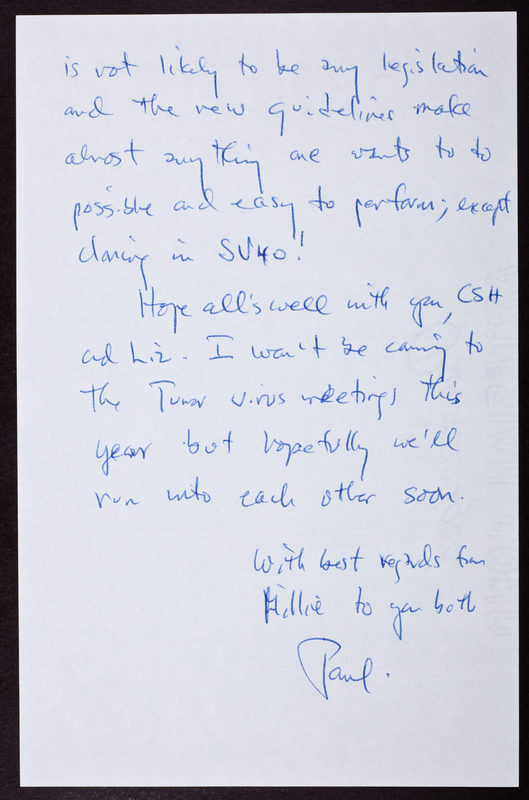 is not likely to be any legislation
and the new guidelines make
almost anything one wants to do
possible and easy to perform; except
cloning in SV40!
Hope all's well with you, CSH
and Liz. I won't be coming to
the Tumor virus meetings this
year but hopefully we'll
run into each other soon.
With best regards from
Millie to you both
Paul.